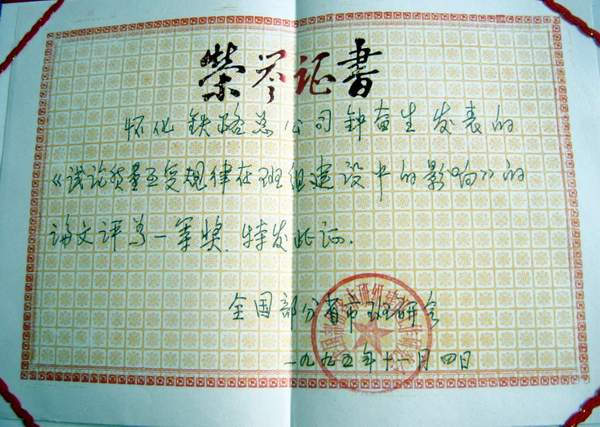 荣誉证书
怀化铁路总公司钟奋生发表的
《试论质量互变规律在班组建设中的影响》的
论文评为一等奖.特发此证.
全国部分省市班研会
一九九五年十一月四日